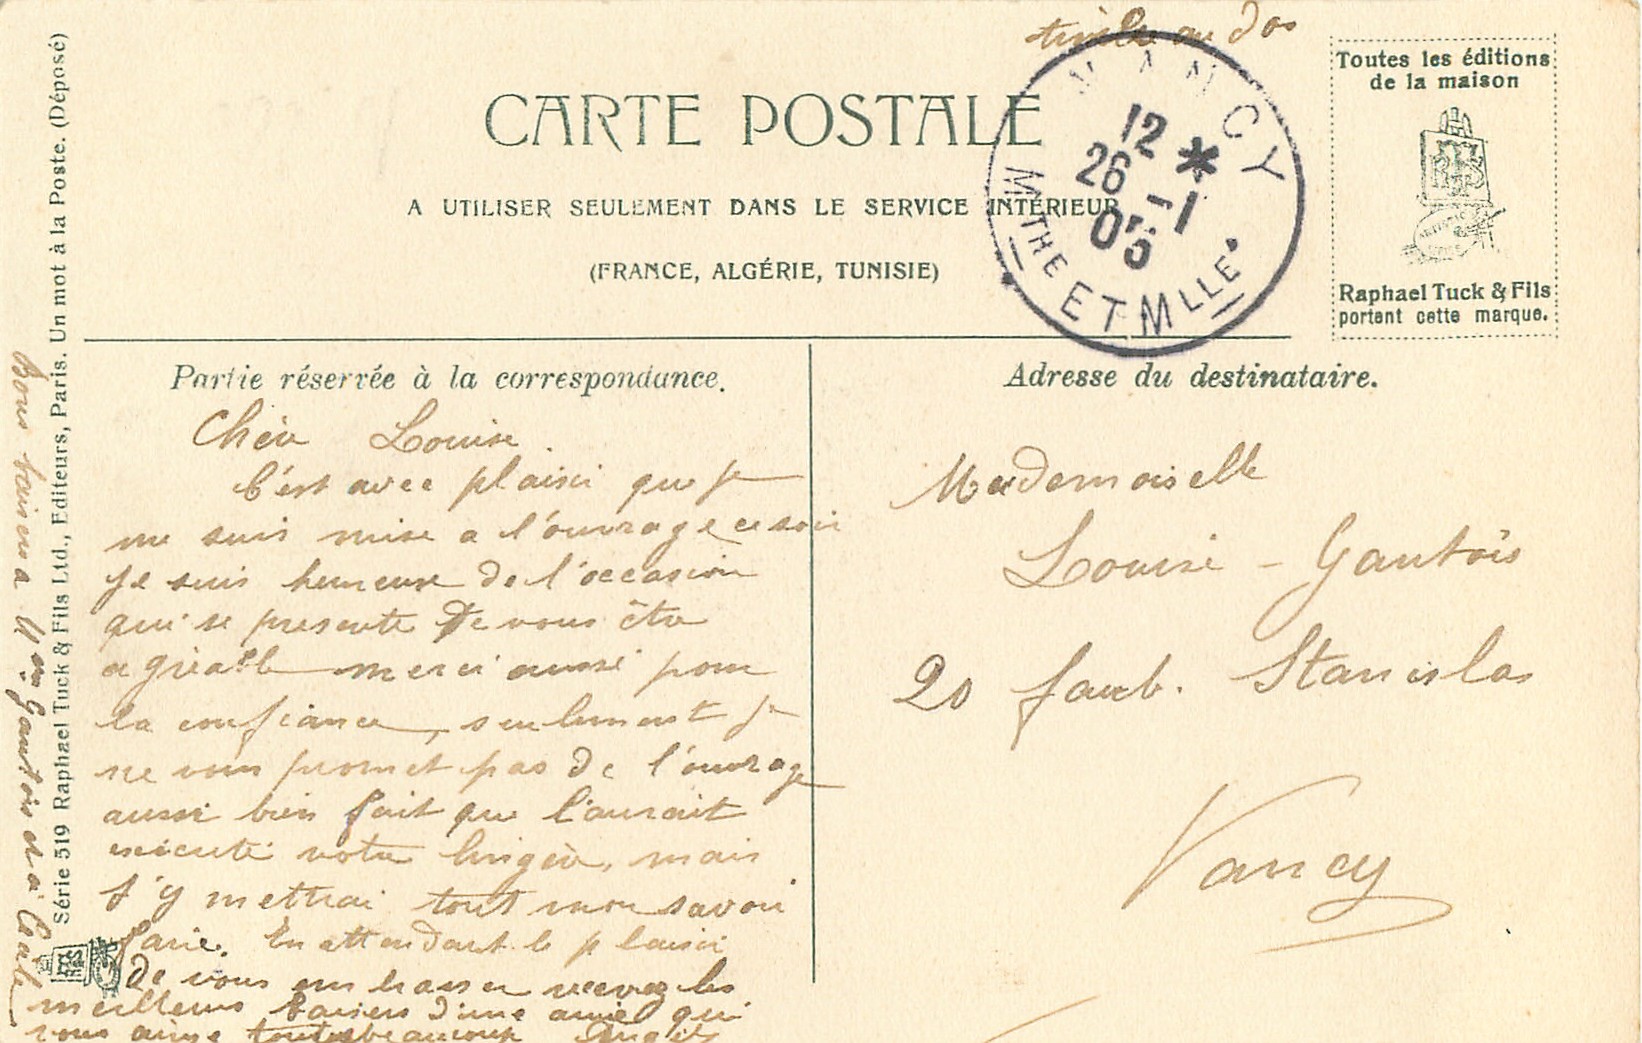 timbre au dos
Toutes les éditions
de la maison
Raphael Tuck & Fils
portent cette marque.
CARTE POSTALE
A UTILISER SEULEMENT DANS LE SERVICE INTÉRIEUR
(FRANCE, ALGÉRIE, TUNISIE)
NANCY
12 *
26 -1
05
MTHE ET MLLE
Partie réservée à la correspondance.
Chère Louise
C'est avec plaisir que je
me suis mise a l'ouvrage ce soir
Je suis heureuse de l'occasion
qui se presente de vous être
agréable merci aussi pour
la confiance, seulement je
ne vous promet pas de l'ouvrage
aussi bien fait que l'aurait
exécuté votre lingère, mais
J'y mettrai tout mon savoir
faire. En attendant le plaisir
de vous embrasser recevez les
meilleurs baisers d'une amie qui
vous aime toutes beaucoup
Bons baisers a Mme Gautois et a Cécile
Série 519 Raphael Tuck & Fils Ltd., Editeurs, Paris. Un mot à la Poste. (Déposé)
Adresse du destinataire.
Mademoiselle
Louise - Gautois
20 faub. Stanislas
Nancy